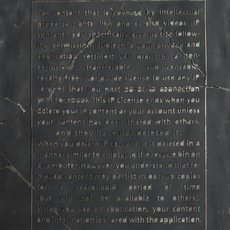 For content that is covered by intellectual
property rights, like photos and videos (IP
content), you specifically give us the follow-
ing permission, subject to your privacy and
application settings: you grant us a non-
exclusive, transferable, sub-licensable,
royalty-free, worldwide license to use any IP
content that you post on or in connection
with Facebook. This IP License ends when you
delete your IP content or your account unless
your content has been shared with others,
and they have not deleted it.
When you delete IP content, it is deleted in a
manner similar to emptying the recycle bin on
a computer. However, you understand that re-
moved content may persist in backup copies
for a reasonable period of time
(but will not be available to others).
When you use an application, your content
and information is shared with the application.